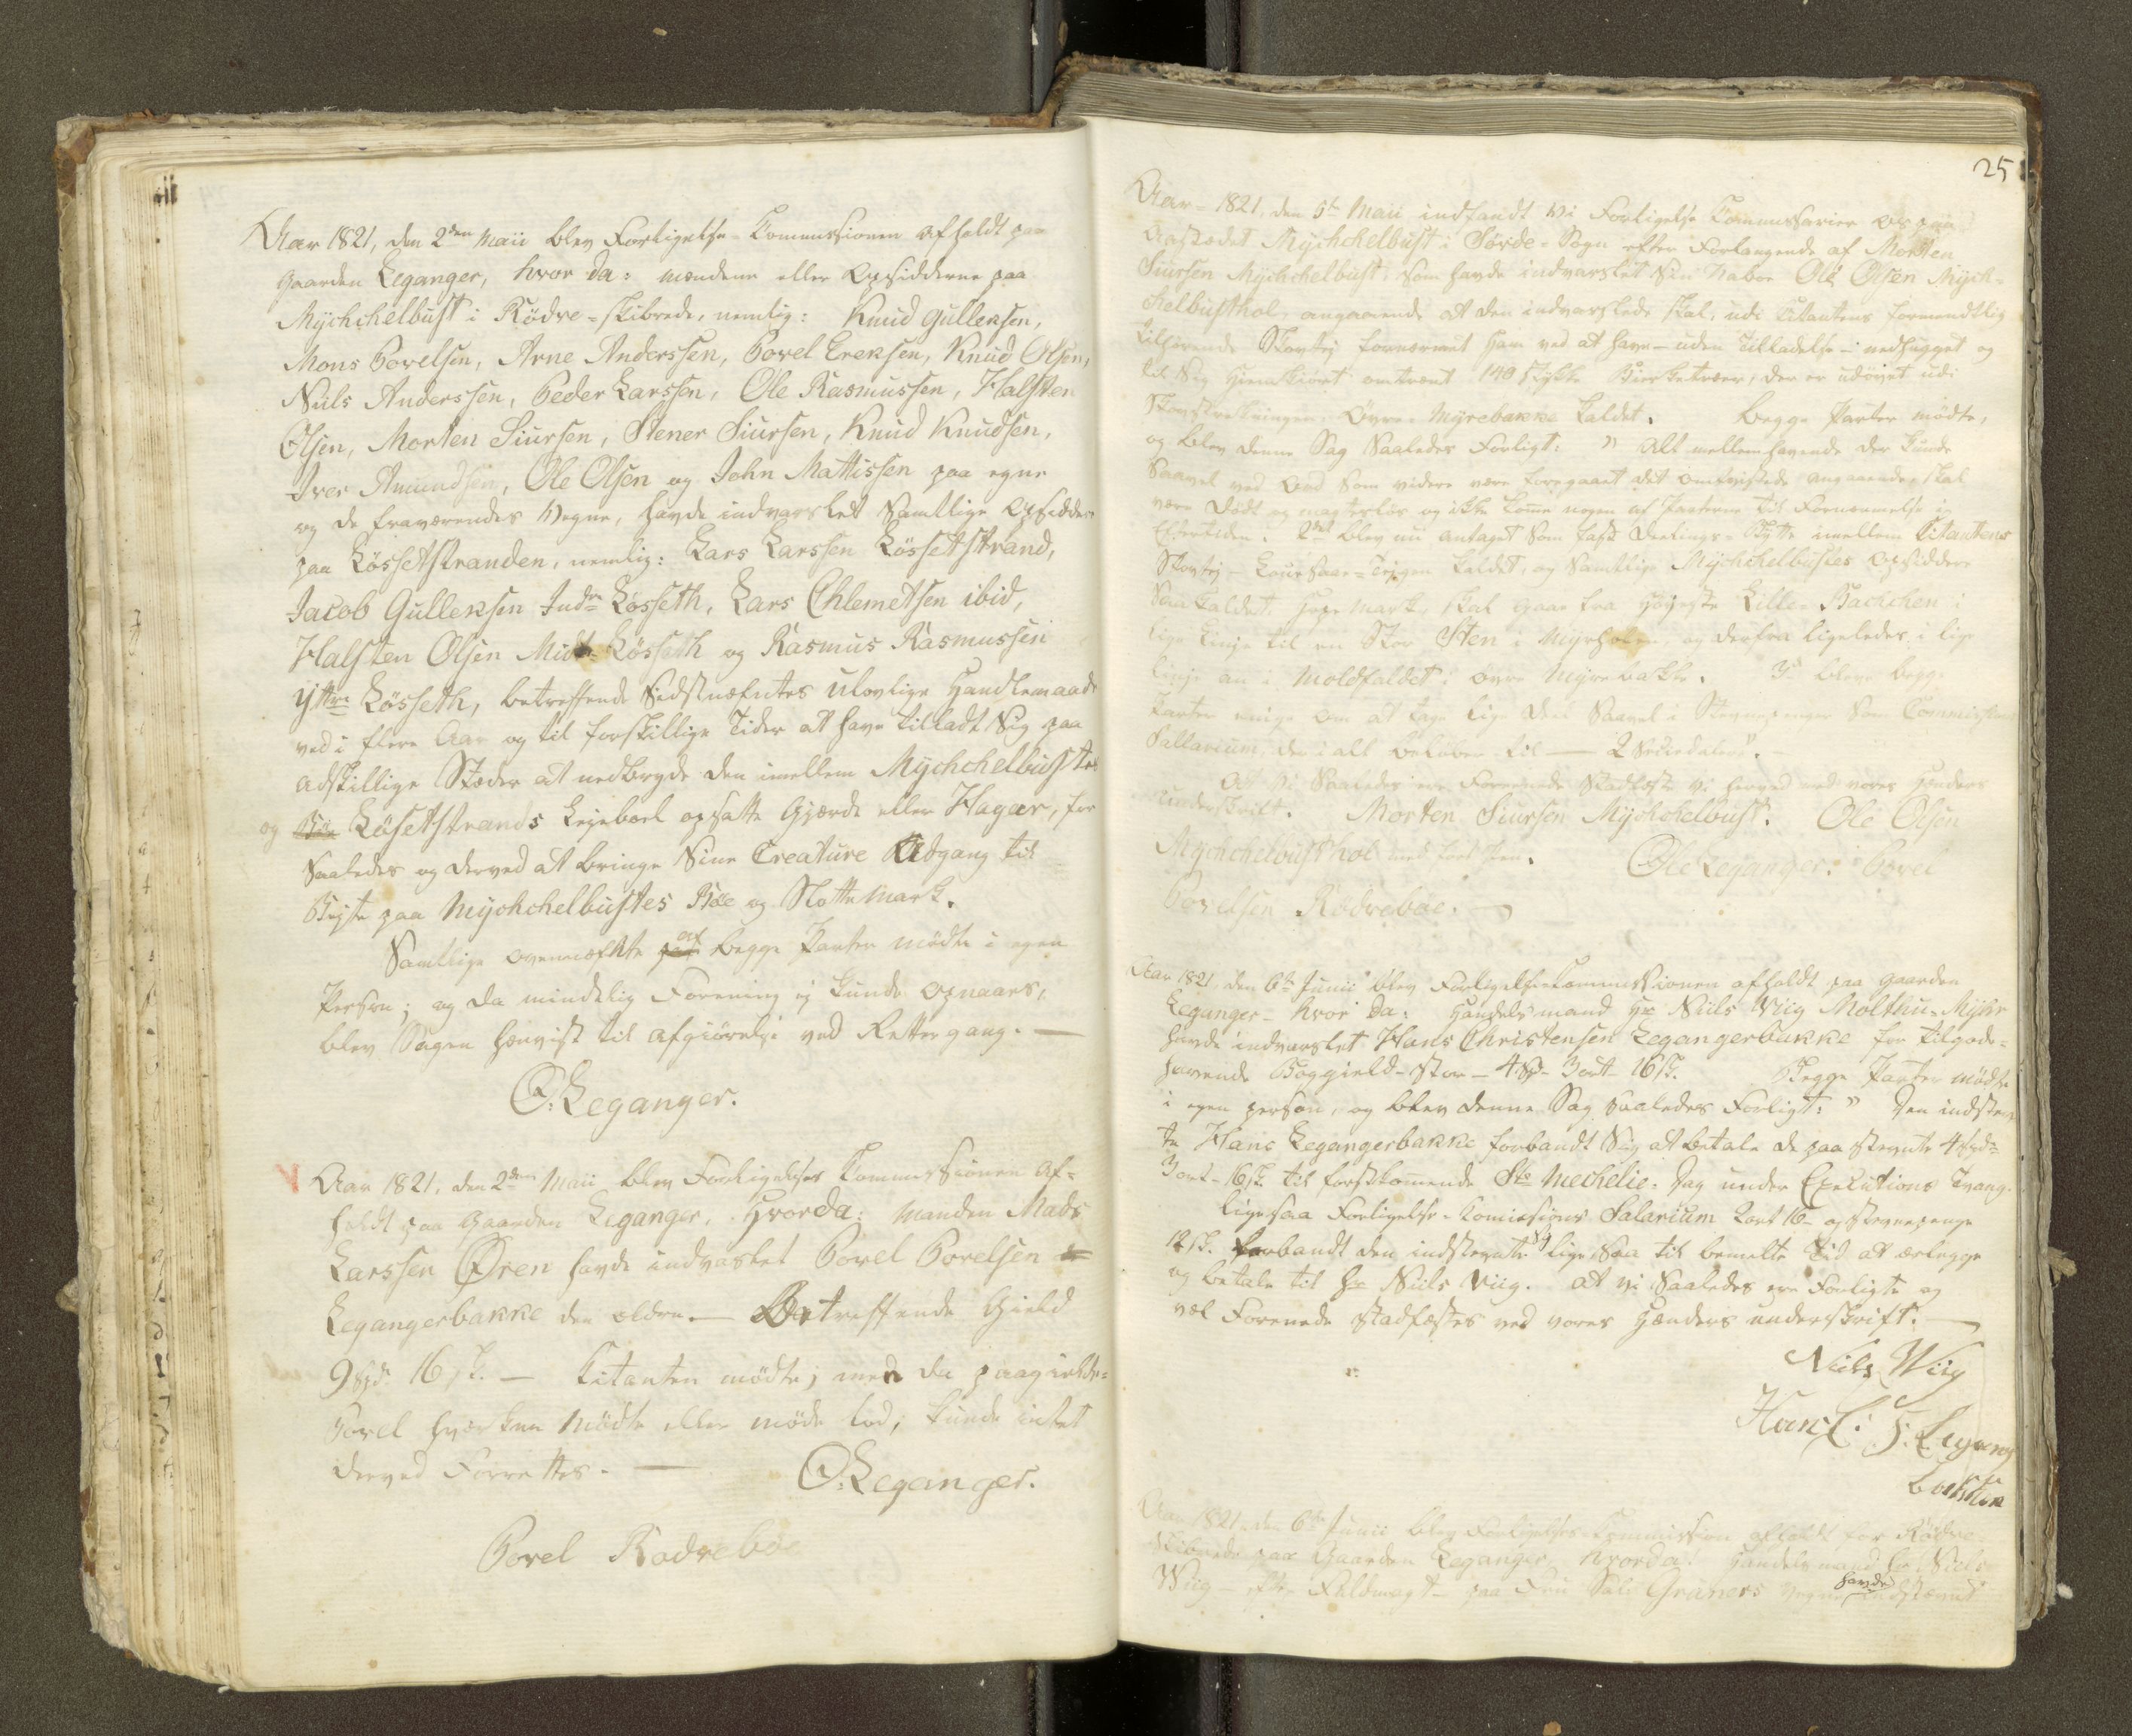 Aar 1821, den 2den Maii blev Forligelse-Commissionen afholdt paa
Gaarden Leganger, hvor da: mændene eller Opsidderne paa
Mÿchchelbust i Rödve-skibrede, nemlig: Knud Gulleksen,
Mons Povelsen, Arne Anderssen, Povel Ereksen, Knud Olsen,
Niels Anderssen, Peder Larssen, Ole Rasmussen, Halsten
Olsen, Morten Siursen, Stener Siursen, Knud Knudsen,
Iver Amundsen, Ole Olsen og John Mattissen paa egne
og de fraværendes Vegne, havde indvarslet Samtlige Opsiddere
paa Lössetstranden, nemlig: Lars Larssen Lössetstrand,
Jacob Gulleksen Indre Lösseth, Lars Chlemetsen ibid,
Halsten Olsen Midt-Lösseth og Rasmus Rasmussen
Ÿttre Lösseth, betreffende Sidstnæfntes ulovlige Handlemaade
ved i flere Aar og til forskillige Tider at have tilladt Sig paa
adskillige Stæder at nedbryde den imellem Mÿchchelbustes
og Lösetstrands Leÿeboel opsatte Gjærde eller Hager, for
Saaledes og derved at bringe Sine Creature Adgang til
Beÿte paa Mÿchchelbustes Böe og Slotte Mark.
Samtlige ovennæfnte af begge Parter mödte i egen
Person; og da mindelig Forening ej kunde opnaaes,
blev Sagen henvist til afgiörelse ved Rettergang. —
O. Leganger.
V Aar 1821, den 2den Maii blev Forligelses Commissionen af-
holdt paa Gaarden Leganger, hvorda: Manden Mads
Larssen Ören havde indvarslet Povel Povelsen
Legangerbakke den ældre. — Betreffende Gield
9 Spd. 16 s. — Citanten mödte, men da paagieldende
Povel hverken mödte eller möde lod, kunde intet
derved Forrettes. —
O. Leganger.
Povel Rodveböe
25
Aar - 1821, den 5te Maii indfandt Vi Forligelse Commissarier os paa
Aastædet Mÿchchelbust i Sörde-Sogn efter Forlangende af Morten
Siursen Mÿchchelbust, som havde indvarslet Sin Naboe Ole Olsen Mÿch-
chelbusthol, angaaende at den indvarslede skal, udi Citantens formendtlig
tilhörende Skovtej fornærmet Ham ved at have - uden Tilladelse - nedhugget og
til Sig Hiemkiört omtrent 140 Stÿkker Birketræer, der er udövet udi
Skovstrækningen Övre-Mÿrebakke kaldet. Begge Parter mödte,
og blev denne Sag Saaledes Forligt: " Alt mellemhavende der kunde
Saavel ved Ord som videre være foregaaet det omtvistede angaaende, skal
være dödt og magteslös og ikke komme nogen af Parterne til Fornærmelse i
Eftertiden. 2det blev nu antaget som fast Deelings-Skifte imellem Citantens
Skovtej kaldet, og Samtlige Mÿchchelbustes Opsiddere
Saakaldet mark, skal gaae fra Höÿeste Lille-Bachchen i
lige Linje til en Stor Sten i Mÿrholen, og derfra ligeledes i lige
Linje an i Moldfaldet i Övre Mÿrebakke. 3de bleve begge
Parter enige om at tage lige deel saavel i Stevnepenger som Commissions
Sallarium, der i alt belöber til — 2 Speciedaler".
At Vi Saaledes ere Forenede Stadfæste Vi herved med vores Hænders
underskrift. Morten Siursen Mÿchchelbust. Ole Olsen
Mÿchchelbusthol med fört Pen. Ole Leganger. Povel
Povelsen Rödveböe.
Aar 1821, den 6te Junii blev Forligelse-Commissionen afholdt paa Gaarden
Leganger - hvor da: Handelsmand Hr. Niels Viig Molthu-Mÿhr
havde indvarslet Hans Christensen Legangerbakke for tilgode-
havende Boggield-stor - 4 Sp. 3 ort 16 s. Begge Parter mödte
i egen person, og blev denne Sag Saaledes Forligt: " Den indstevn-
te Hans Legangerbakke forbandt Sig at betale de paastevnte 4 Spd.
3 ort 16 s til forstkommende Ste Mechelie-Dag under Executions Tvang.
ligesaa Forligelse-Comissions Salarium 2 ort 16 - og stevnepenge
12 s. forbandt den indstevnte Sig ligesaa til bemelte Tid at erlegge
og betale til Hr. Niels Viig. At vi Saaledes ere Forligte og
vel Forenede stadfæstes ved vores Hænders underskrift. —
Niels Wiig
Hans C: S: Legang
backken
Aar 1821, den 6te Junii blev Forligelses-Commission afholdt for Rödve
Skibrede paa Gaarden Leganger, hvorda: Handelsmand Hr. Niels
Wiig - efter Fuldmagt - paa Fru Grüners Vegne havde indstevnt